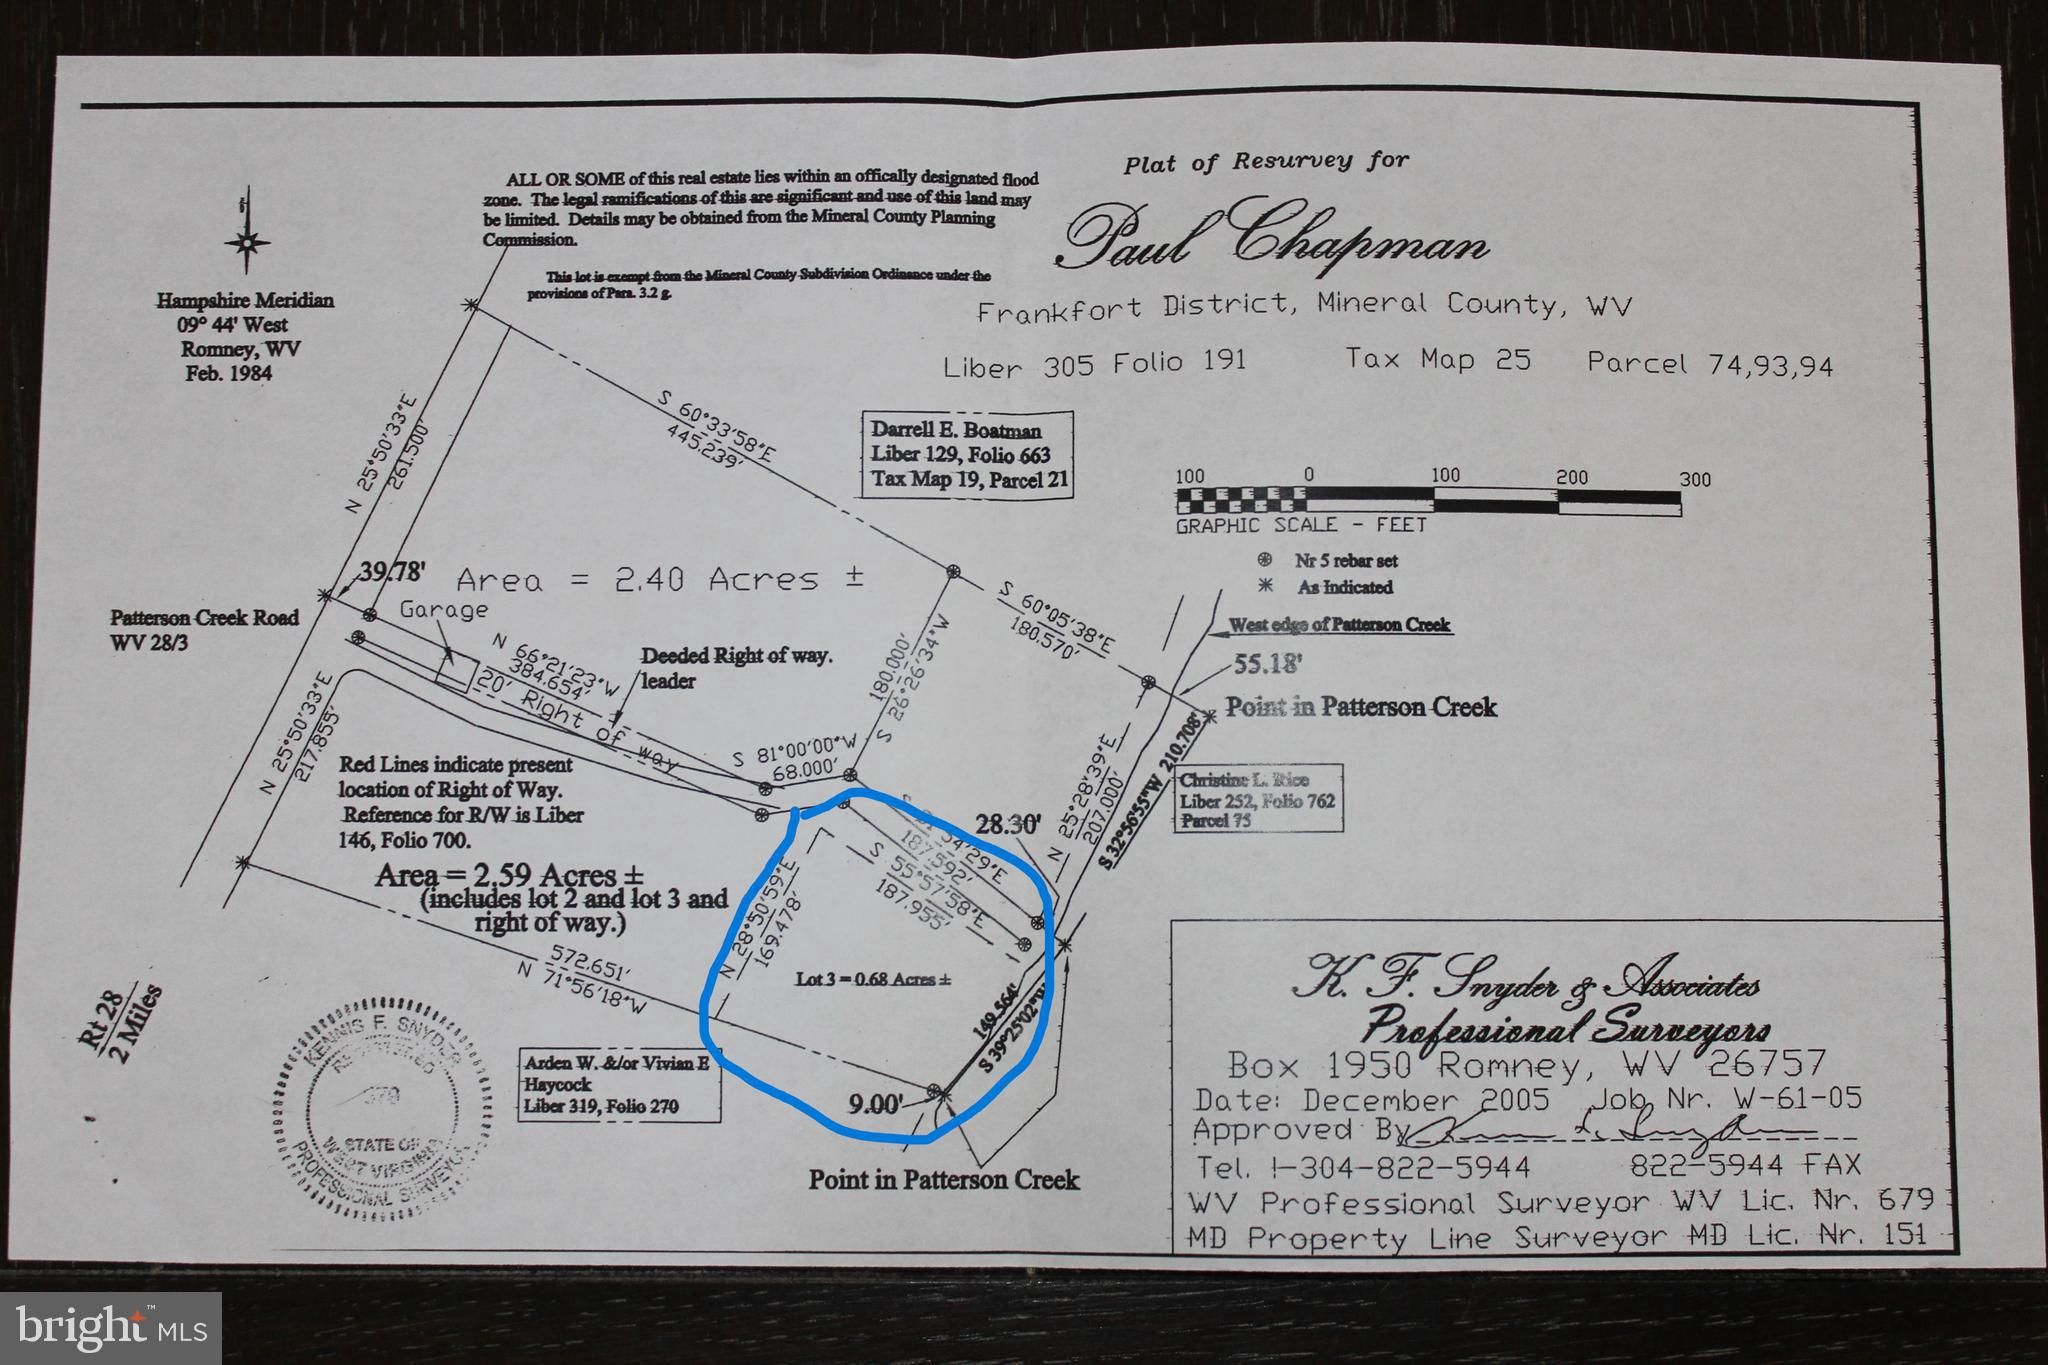 Plat of Resurvey for
Paul Chapman
Frankfort District, Mineral County, WV
Liber 305 Folio 191 Tax Map 25 Parcel 74,93,94
ALL OR SOME of this real estate lies within an offically designated flood
zone. The legal ramifications of this are significant and use of this land may
be limited. Details may be obtained from the Mineral County Planning
Commission.
This lot is exempt from the Mineral County Subdivision Ordinance under the
provisions of Para. 3.2 g.
Hampshire Meridian
09° 44' West
Romney, WV
Feb. 1984
N 25°50'33"E
261.500'
S 60°33'58"E
445.239'
Darrell E. Boatman
Liber 129, Folio 663
Tax Map 19, Parcel 21
100 0 100 200 300
GRAPHIC SCALE - FEET
Nr 5 rebar set
As Indicated
39.78'
Area = 2.40 Acres ±
Garage
Patterson Creek Road
WV 28/3
N 66°21'23"W
384.654'
20' Right of way
Deeded Right of way.
leader
180.000'
S 26°26'34"W
S 60°05'38"E
180.570'
West edge of Patterson Creek
55.18'
Point in Patterson Creek
N 25°50'33"E
217.855'
S 81°00'00"W
68.000'
Red Lines indicate present
location of Right of Way.
Reference for R/W is Liber
146, Folio 700.
Area = 2.59 Acres ±
(includes lot 2 and lot 3 and
right of way.)
N 25°28'39"E
207.000'
S 32°56'55"W 210.708'
Christine L. Rice
Liber 252, Folio 762
Parcel 75
28.30'
54'29"E
187.592'
S 55°57'58"E
187.955'
N 28°50'59"E
169.478'
Lot 3 = 0.68 Acres ±
572.651'
N 71°56'18"W
149.564'
S 39°25'02"W
9.00'
Point in Patterson Creek
Arden W. &/or Vivian E
Haycock
Liber 319, Folio 270
Rt 28
2 Miles
KENNIS F. SNYDER
REGISTERED
679
STATE OF
WEST VIRGINIA
PROFESSIONAL SURVEYOR
K. F. Snyder & Associates
Professional Surveyors
Box 1950 Romney, WV 26757
Date: December 2005 Job Nr. W-61-05
Approved By
Tel. 1-304-822-5944 822-5944 FAX
WV Professional Surveyor WV Lic. Nr. 679
MD Property Line Surveyor MD Lic. Nr. 151
bright™ MLS